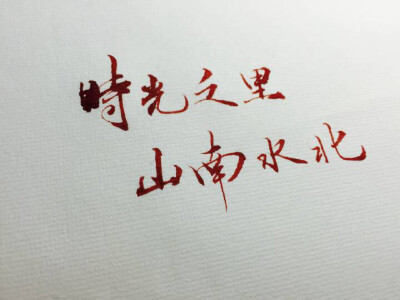 時光之里
山南水北